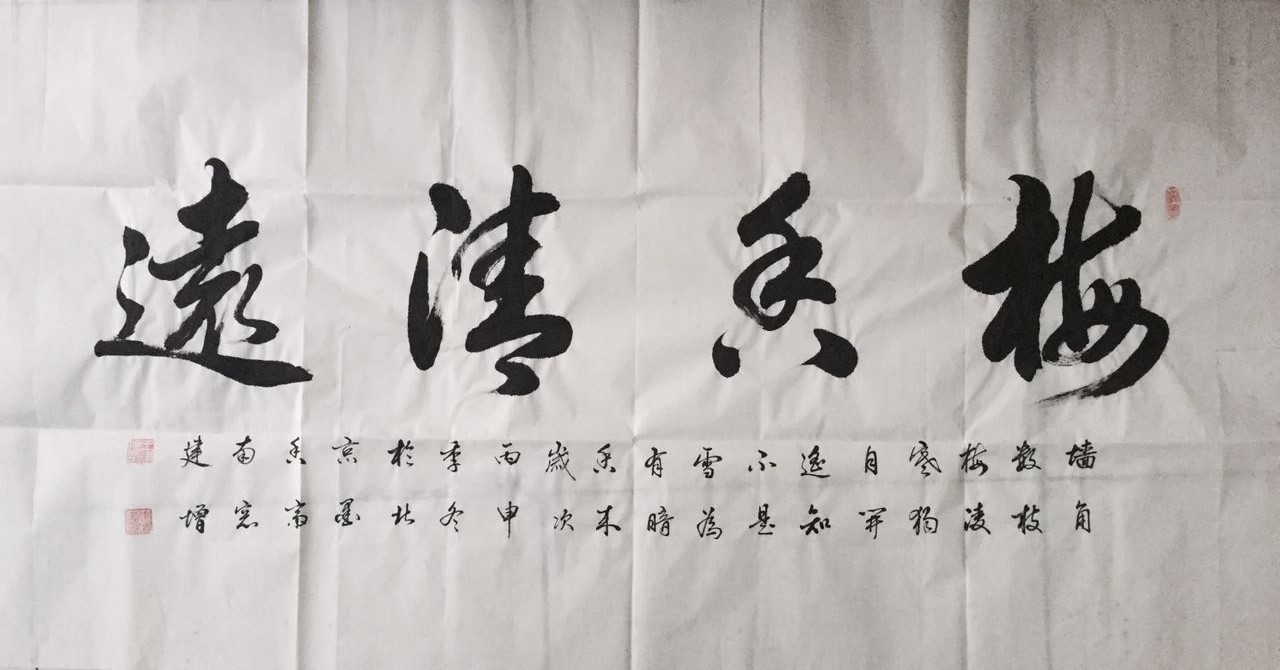 梅香清遠
墙角
數枝
梅凌
寒獨
自開
遥知
不是
雪為
有暗
香來
歲次
丙申
季冬
於北
京墨
香斋
南窓
建增